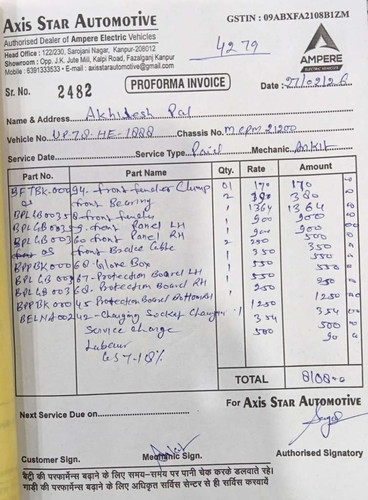 AXIS STAR AUTOMOTIVE
GSTIN : 09ABXFA2108B1ZM
Authorised Dealer of Ampere Electric Vehicles
Head Office : 122/230, Sarojani Nagar, Kanpur-208012
Showroom : Opp. J.K. Jute Mill, Kalpi Road, Fazalganj Kanpur
Mobile : 6391333533 • E-mail : axisstarautomotive@gmail.com
4279
AMPERE
ELECTRIC VEHICLES
Sr. No. 2482
PROFORMA INVOICE
Date : 27/02/26
Name & Address Akhilesh Pal
Vehicle No. UP-78-HE-1888 Chassis No. 21200
Service Date Service Type Paid Mechanic Ankit
Part No. Part Name Qty. Rate Amount
94- front fender Clump 01 170 170
front Bearing 2 380
8- front fender 1 1364 1364
9- front Panel LH 1 900 900
60 front Panel RH 1 900 900
front Brake Cable 2 250 500
Glove Box 1 350 350
67- Protection Board LH 1 550 550
68- Protection Board RH 1 550 550
45 Protection Board Bottom 1 1250 1250
42- Charging Socket 1 354 354
Service Charge 350 350
Labour 500 500
GST-18% 90
TOTAL 8108-0
Next Service Due on
For AXIS STAR AUTOMOTIVE
Customer Sign. Mechanic Sign. Authorised Signatory
बैट्री की परफार्मेन्स बढ़ाने के लिए समय-समय पर पानी चेक करके डलवाते रहे।
गाड़ी की परफार्मेन्स बढ़ाने के लिए अधिकृत सर्विस सेन्टर से ही सर्विस करवायें